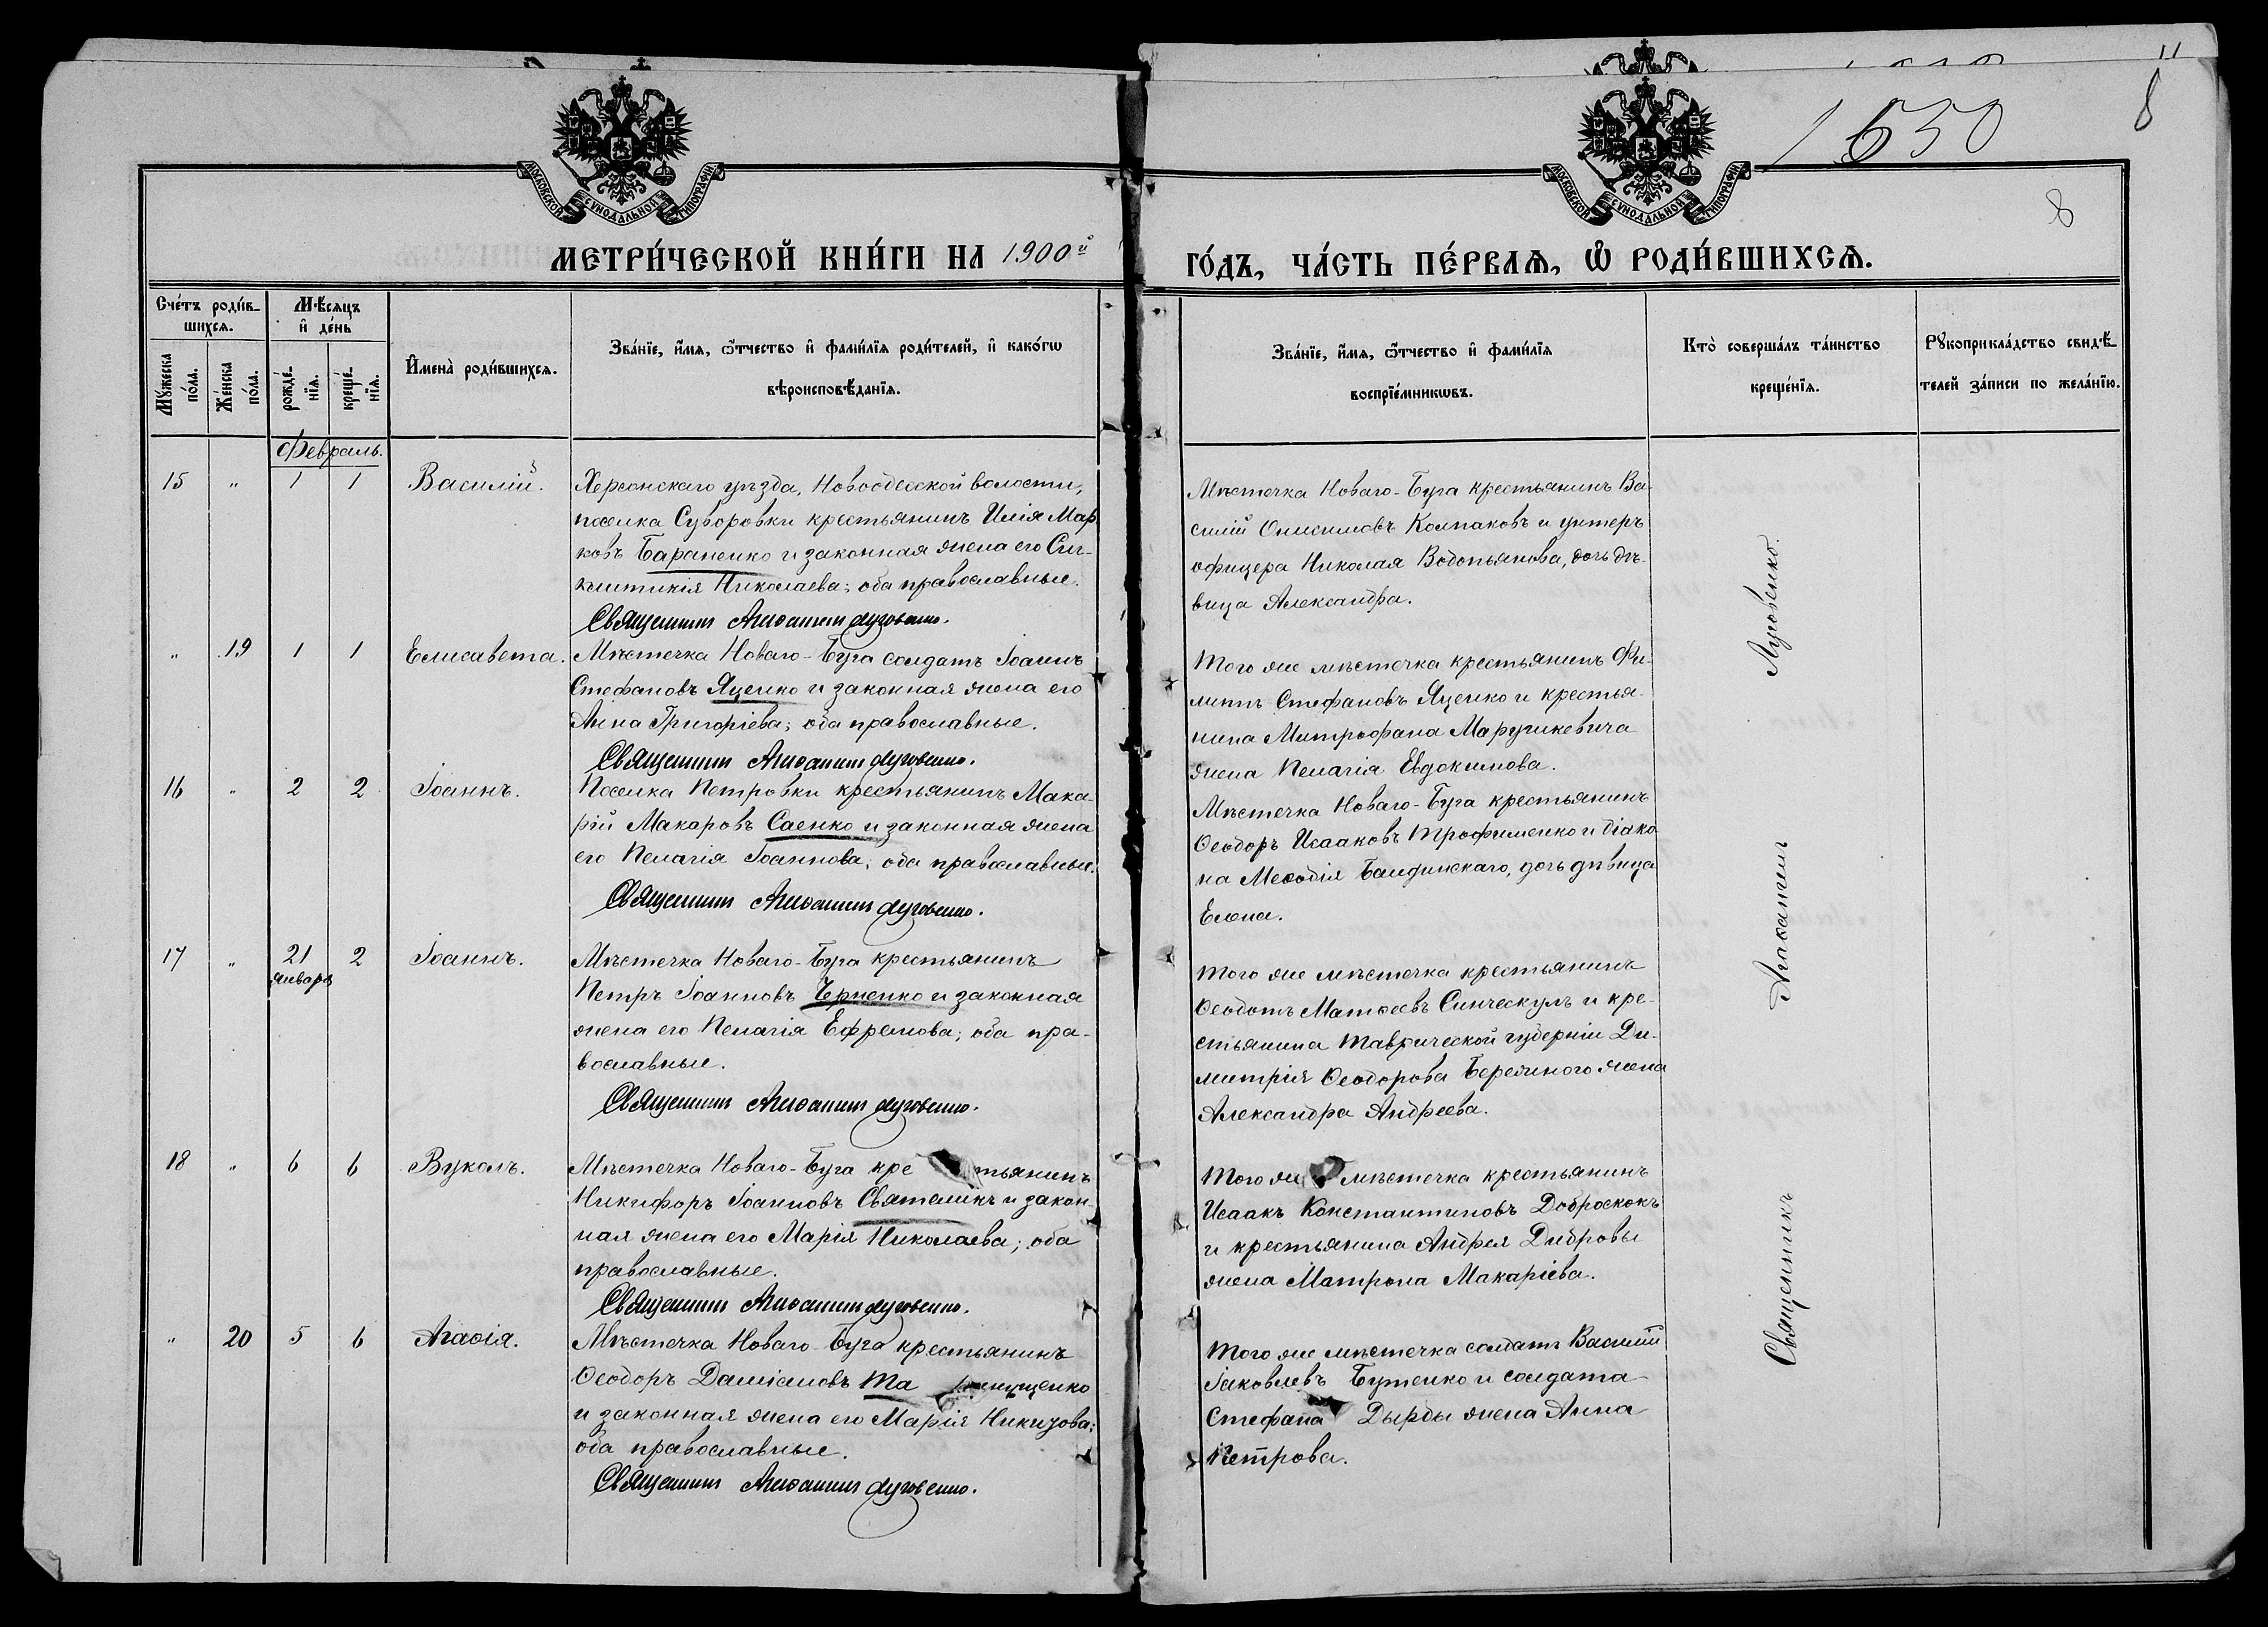 1650
8
8
МОСКОВСКОЙ СУНОДАЛЬНОЙ ТИПОГРАФІИ.
МОСКОВСКОЙ СУНОДАЛЬНОЙ ТИПОГРАФІИ.
МЕТРИ́ЧЕСКОЙ КНИ́ГИ НА 1900й ГО́ДЪ, ЧА́СТЬ ПЕ́РВАѦ, Ѽ РОДИ́ВШИХСѦ.
Сче́тъ роди́в-
шихсѧ.
Мѣ́сяцъ
и҆ де́нь
Мꙋ́жеска по́ла.
Же́нска по́ла.
рожде́-
нїѧ.
креще́-
нїѧ.
И҆мена̀ роди́вшихсѧ.
Зва́нїе, и҆́мѧ, ѻ҆́тчество и҆ фами́лїѧ роди́телей, и҆ како́гѡ
вѣроисповѣ́данїѧ.
Зва́нїе, и҆́мѧ, ѻ҆́тчество и҆ фами́лїѧ
воспрїе́мникѡвъ.
Кто̀ соверша́лъ та́инство
креще́нїѧ.
Рꙋкоприкла́дство свидѣ́-
телей за́писи по жела́нїю.
Февраль.
15 " 1 1 Василій.
Херсонскаго уѣзда, Новоодесской волости,
поселка Суворовки крестьянинъ Илія Мар
ковъ Бараненко и законная жена его Син-
клитикія Николаева; оба православные.
Священникъ Агаѳангелъ Луговенко.
Мѣстечка Новаго-Буга крестьянинъ Ва-
силій Онисимовъ Колпаковъ и унтеръ
офицера Николая Водопьянова, дочь дѣ-
вица Александра.
" 19 1 1 Елисавета.
Мѣстечка Новаго-Буга солдатъ Іоаннъ
Стефановъ Яценко и законная жена его
Анна Григоріева; оба православные.
Священникъ Агаѳангелъ Луговенко.
Того же мѣстечка крестьянинъ Фи-
липпъ Стефановъ Яценко и крестья-
нина Митрофана Марушкевича
жена Пелагія Евдокимова.
16 " 2 2 Іоаннъ.
Поселка Петровки крестьянинъ Мака-
рій Макаровъ Саенко и законная жена
его Пелагія Іоаннова; оба православные.
Священникъ Агаѳангелъ Луговенко.
Мѣстечка Новаго-Буга крестьянинъ
Ѳеодоръ Исааковъ Трофименко и діако
на Меѳодія дочь дѣвица
Елена.
17 " 21 января 2 Іоаннъ.
Мѣстечка Новаго-Буга крестьянинъ
Петръ Іоанновъ Черненко и законная
жена его Пелагія Ефремова; оба пра-
вославные.
Священникъ Агаѳангелъ Луговенко.
Того же мѣстечка крестьянинъ
Ѳеодотъ Матѳеевъ и кре-
стьянина Таврической губерніи Ди-
митрія Ѳеодорова жена
Александра Андреева.
18 " 6 6 Вуколъ.
Мѣстечка Новаго-Буга кре тьянинъ
Никифоръ Іоанновъ Святеликъ и закон
ная жена его Марія Николаева; оба
православные.
Священникъ Агаѳангелъ Луговенко.
Того же мѣстечка крестьянинъ
Исаакъ Константиновъ Доброскокъ
и крестьянина Андрея Дибровы
жена Матрона Макаріева.
" 20 5 6 Агаѳія.
Мѣстечка Новаго-Буга крестьянинъ
Ѳеодоръ Даміановъ Та
и законная жена его Марія
оба православные.
Священникъ Агаѳангелъ Луговенко.
Того же мѣстечка солдатъ Василій
Іаковлевъ Бутенко и солдата
Стефана Дырды жена Анна
Петрова.
Священникъ Агаѳангелъ Луговенко.